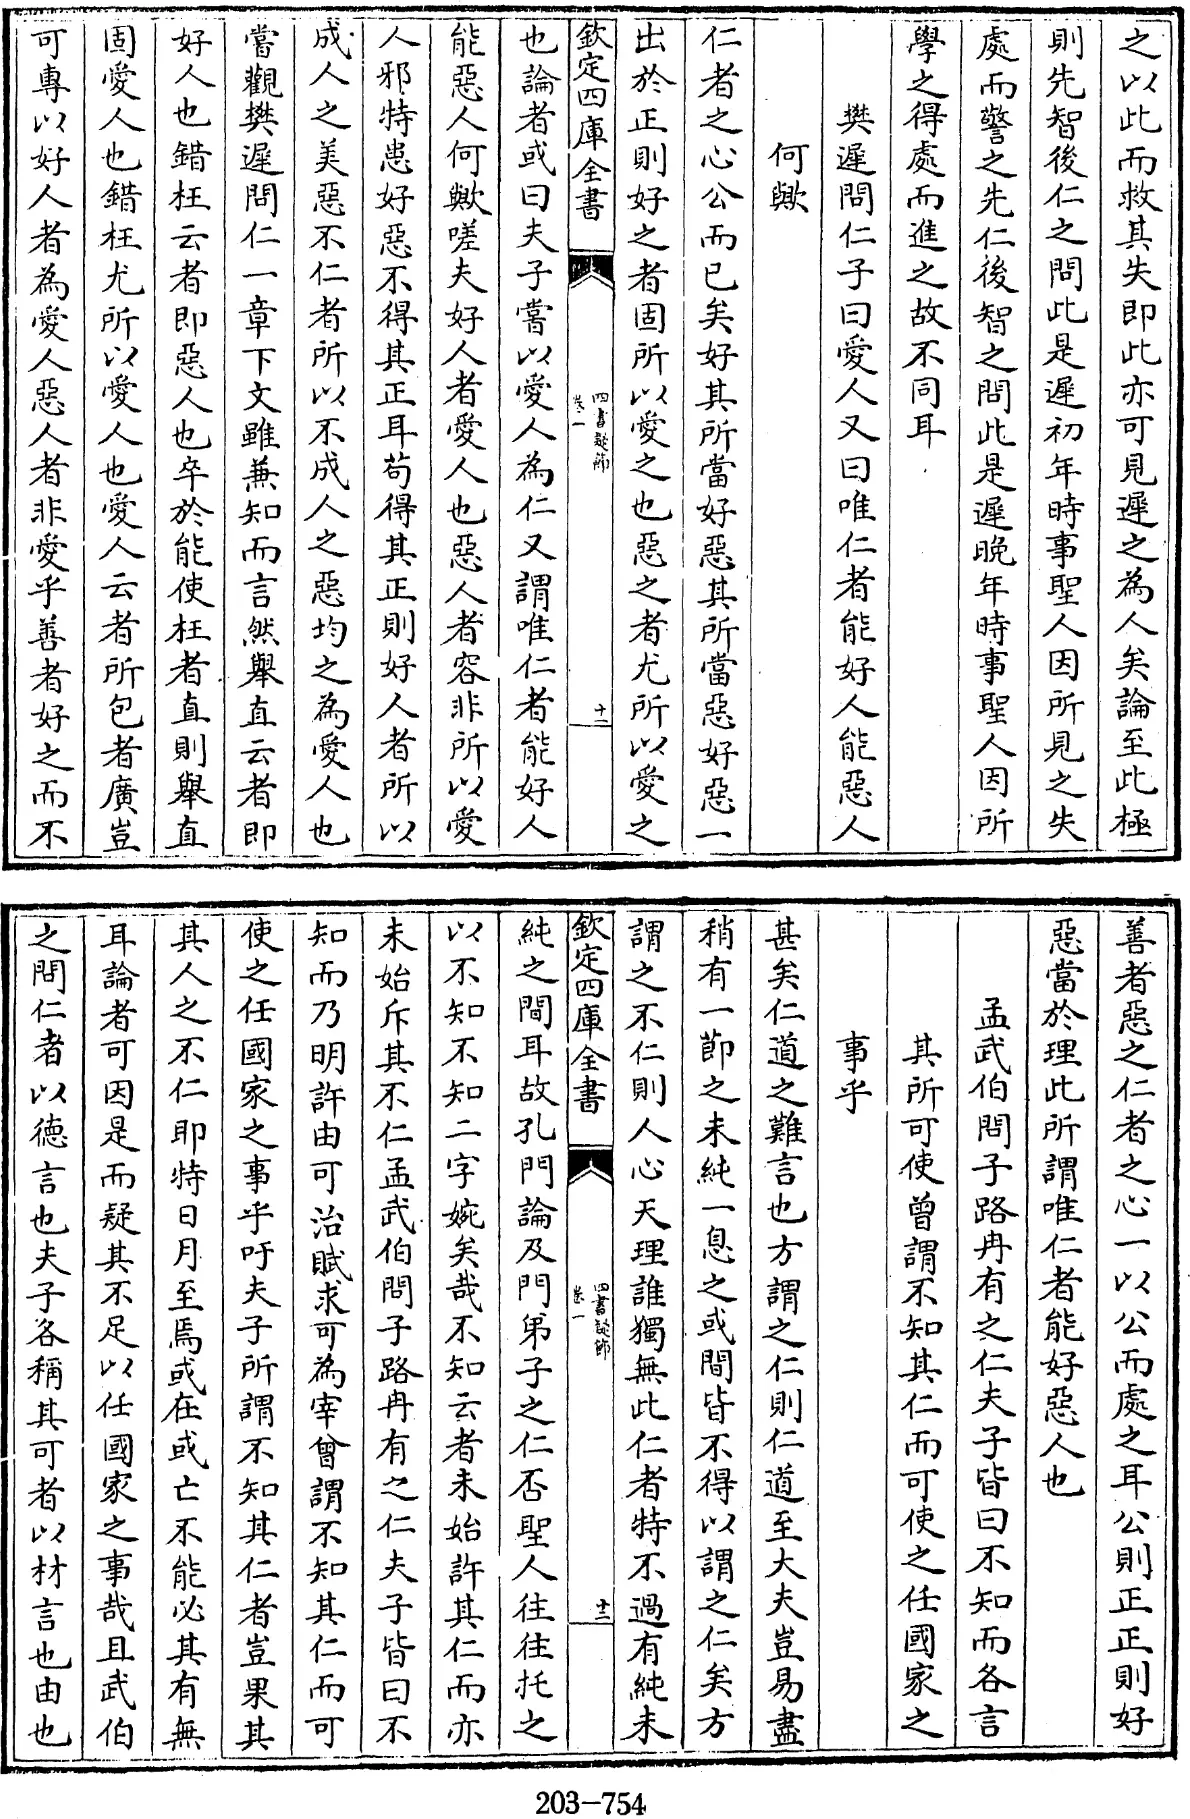 之以此而救其失即此亦可見遲之為人矣論至此極
則先智後仁之問此是遲初年時事聖人因所見之失
處而警之先仁後智之問此是遲晚年時事聖人因所
學之得處而進之故不同耳
樊遲問仁子曰愛人又曰唯仁者能好人能惡人
何歟
仁者之心公而已矣好其所當好惡其所當惡好惡一
出於正則好之者固所以愛之也惡之者尤所以愛之
欽定四庫全書
四書疑節
卷一
十二
也論者或曰夫子嘗以愛人為仁又謂唯仁者能好人
能惡人何歟嗟夫好人者愛人也惡人者容非所以愛
人邪特患好惡不得其正耳苟得其正則好人者所以
成人之美惡不仁者所以不成人之惡均之為愛人也
嘗觀樊遲問仁一章下文雖兼知而言然舉直云者即
好人也錯枉云者即惡人也卒於能使枉者直則舉直
固愛人也錯枉尤所以愛人也愛人云者所包者廣豈
可專以好人者為愛人惡人者非愛乎善者好之而不
善者惡之仁者之心一以公而處之耳公則正正則好
惡當於理此所謂唯仁者能好惡人也
孟武伯問子路冉有之仁夫子皆曰不知而各言
其所可使曾謂不知其仁而可使之任國家之
事乎
甚矣仁道之難言也方謂之仁則仁道至大夫豈易盡
稍有一節之未純一息之或間皆不得以謂之仁矣方
謂之不仁則人心天理誰獨無此仁者特不過有純未
欽定四庫全書
四書疑節
卷一
十三
純之間耳故孔門論及門弟子之仁否聖人往往托之
以不知不知二字婉矣哉不知云者未始許其仁而亦
未始斥其不仁孟武伯問子路冉有之仁夫子皆曰不
知而乃明許由可治賦求可為宰曾謂不知其仁而可
使之任國家之事乎吁夫子所謂不知其仁者豈果其
其人之不仁耶特日月至焉或在或亡不能必其有無
耳論者可因是而疑其不足以任國家之事哉且武伯
之問仁者以德言也夫子各稱其可者以材言也由也
203-754